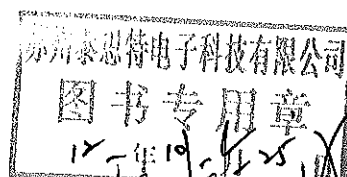 苏州泰思特电子科技有限公司
图书专用章
12年10月25